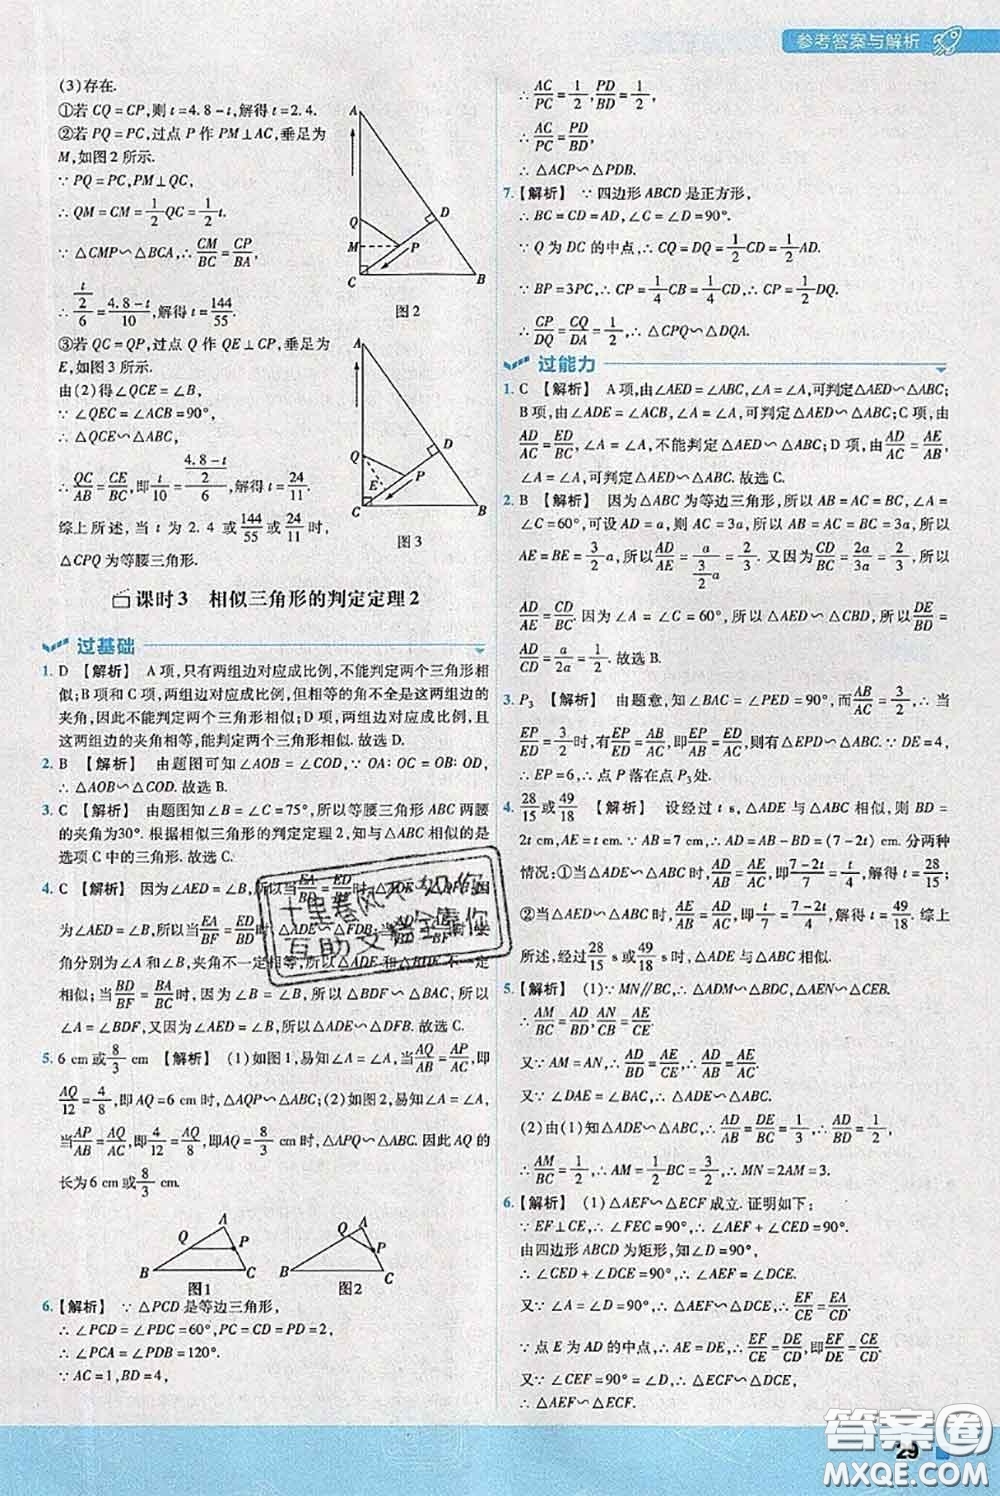 参考答案与解析
(3)存在.
①若 CQ = CP,则 t = 4.8 - t,解得 t = 2.4.
②若 PQ = PC,过点 P 作 PM⊥AC,垂足为
M,如图 2 所示.
∵ PQ = PC,PM⊥QC,
∴ QM = CM = 1/2 QC = 1/2 t.
∵ △CMP∽△BCA,∴ CM/BC = CP/BA,
∴ (t/2)/6 = (4.8-t)/10,解得 t = 144/55.
③若 QC = QP,过点 Q 作 QE⊥CP,垂足为
E,如图 3 所示.
由(2)得∠QCE = ∠B,
∵ ∠QEC = ∠ACB = 90°,
∴ △QCE∽△ABC,
∴ QC/AB = CE/BC,即 t/10 = ((4.8-t)/2)/6,解得 t = 24/11.
综上所述,当 t 为 2.4 或 144/55 或 24/11 时,
△CPQ 为等腰三角形.
A
Q
M
P
D
C
B
图 2
A
Q
E
P
D
C
B
图 3
课时 3 相似三角形的判定定理 2
过基础
1. D 【解析】 A 项,只有两组边对应成比例,不能判定两个三角形相
似;B 项和 C 项,两组边对应成比例,但相等的角不全是这两组边的
夹角,因此不能判定两个三角形相似;D 项,两组边对应成比例,且
这两组边的夹角相等,能判定两个三角形相似.故选 D.
2. B 【解析】 由题图可知∠AOB = ∠COD,∵ OA: OC = OB: OD,
∴ △AOB∽△COD.故选 B.
3. C 【解析】 由题图知∠B = ∠C = 75°,所以等腰三角形 ABC 两腰
的夹角为30°.根据相似三角形的判定定理 2,知与△ABC 相似的是
选项 C 中的三角形.故选 C.
4. C 【解析】 因为∠AED = ∠B,所以当 EA/BD = ED/BF 时,△ADE∽△DFB;因
为∠AED = ∠B,所以当 EA/BF = ED/BD 时,△ADE∽△FDB;当 AD/BD = AE/BF 时,夹
角分别为∠A 和∠B,夹角不一定相等,所以△ADE 和△DFB 不一定
相似;当 BD/BF = BA/BC 时,∠B = ∠B,所以△BDF∽△BAC,所以
∠A = ∠BDF,又因为∠AED = ∠B,所以△ADE∽△DFB.故选 C.
5. 6 cm 或 8/3 cm 【解析】 (1)如图 1,易知∠A = ∠A,当 AQ/AB = AP/AC,即
AQ/12 = 4/8,即 AQ = 6 cm 时,△AQP∽△ABC;(2)如图 2,易知∠A = ∠A,
当 AP/AB = AQ/AC,即 4/12 = AQ/8,即AQ = 8/3 cm 时,△APQ∽△ABC.因此 AQ 的
长为6 cm 或 8/3 cm.
A
Q
P
B
C
图1
A
Q
P
B
C
图2
6. 【解析】 ∵ △PCD 是等边三角形,
∴ ∠PCD = ∠PDC = 60°,PC = CD = PD = 2,
∴ ∠PCA = ∠PDB = 120°.
∵ AC = 1,BD = 4,
∴ AC/PC = 1/2, PD/BD = 1/2,
∴ AC/PC = PD/BD,
∴ △ACP∽△PDB.
7. 【解析】 ∵ 四边形 ABCD 是正方形,
∴ BC = CD = AD,∠C = ∠D = 90°.
∵ Q 为 DC 的中点,∴ CQ = DQ = 1/2 CD = 1/2 AD.
∵ BP = 3PC,∴ CP = 1/4 CB = 1/4 CD,∴ CP = 1/2 DQ.
∴ CP/DQ = CQ/DA = 1/2,∴ △CPQ∽△DQA.
过能力
1. C 【解析】 A 项,由∠AED = ∠ABC,∠A = ∠A,可判定△ADE∽△ABC;
B 项,由∠ADE = ∠ACB,∠A = ∠A,可判定△ADE∽△ABC;C 项,由
AD/AC = ED/BC,∠A = ∠A,不能判定△ADE∽△ABC;D 项,由 AD/AC = AE/AB,
∠A = ∠A,可判定△ADE∽△ABC.故选 C.
2. B 【解析】 因为△ABC 为等边三角形,所以 AB = AC = BC,∠A =
∠C = 60°,可设 AD = a,则 AC = 3a,所以 AB = AC = BC = 3a,所以
AE = BE = 3/2 a,所以 AD/AE = a/(3/2 a) = 2/3. 又因为 CD/BC = 2a/3a = 2/3,所以
AD/AE = CD/CB,∠A = ∠C = 60°,所以△ADE∽△CBD,所以 DE/BD =
AD/CD = a/2a = 1/2.故选 B.
3. P3 【解析】 由题意,知∠BAC = ∠PED = 90°,而 AB/AC = 3/2,∴ 当
EP/ED = 3/2 时,有 EP/ED = AB/AC,即 EP/AB = ED/AC,则有△EPD∽△ABC.∵ DE = 4,
∴ EP = 6,∴ 点 P 落在点 P3处.
4. 28/15 或 49/18 【解析】 设经过 t s,△ADE 与△ABC 相似,则 BD =
2t cm,AE = t cm.∵ AB = 7 cm,∴ AD = AB - BD = (7 - 2t) cm.分两种
情况:①当△ADE∽△ABC 时, AD/AB = AE/AC,即 (7-2t)/7 = t/4,解得 t = 28/15;
②当△ADE∽△ACB 时, AE/AB = AD/AC,即 t/7 = (7-2t)/4,解得 t = 49/18.综上
所述,经过 28/15 s 或 49/18 s 时,△ADE 与△ABC 相似.
5. 【解析】 (1)∵ MN∥BC,∴ △ADM∽△BDC,△AEN∽△CEB.
∴ AM/BC = AD/BD, AN/CB = AE/CE.
又∵ AM = AN,∴ AD/BD = AE/CE,∴ AD/AB = AE/AC.
又∵ ∠A = ∠A,∴ △ADE∽△ABC.
(2)由(1)知△ADE∽△ABC,∴ AD/AB = DE/BC = 1/3,∴ AD/BD = 1/2,
∴ AM/BC = 1/2,∴ AM = 1/2 BC = 3/2,∴ MN = 2AM = 3.
6. 【解析】 (1)△AEF∽△ECF 成立. 证明如下:
∵ EF⊥CE,∴ ∠FEC = 90°,∴ ∠AEF + ∠CED = 90°.
由四边形 ABCD 为矩形,知∠D = 90°,
∴ ∠CED + ∠DCE = 90°,∴ ∠AEF = ∠DCE.
又∵ ∠A = ∠D = 90°,∴ △AEF∽△DCE,∴ EF/CE = EA/CD.
∵ 点 E 为 AD 的中点,∴ AE = DE,∴ EF/CE = DE/CD,即 EF/DE = CE/CD.
又∵ ∠CEF = ∠D = 90°,∴ △ECF∽△DCE,
∴ △AEF∽△ECF.
十里春风不如你
互助文档全靠你
29
答案圈
MXQE.COM